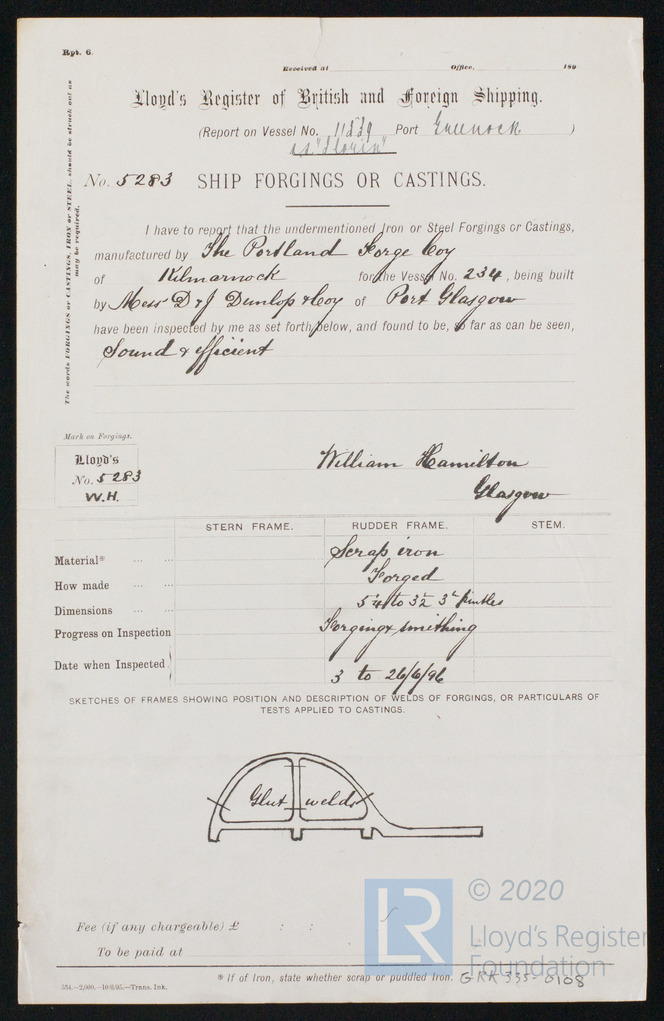 Rpt. 6.
Received at Office, 189
Lloyd's Register of British and Foreign Shipping.
(Report on Vessel No. 11839 Port Greenock )
ss
No. 5283 SHIP FORGINGS OR CASTINGS.
The words FORGINGS or CASTINGS, IRON or STEEL, should be struck out as may be required.
I have to report that the undermentioned Iron or Steel Forgings or Castings,
manufactured by The Portland Forge Coy
of Kilmarnock for the Vessel No. 234, being built
by Mess D & J Dunlop & Coy of Port Glasgow
have been inspected by me as set forth below, and found to be, so far as can be seen,
Sound & efficient
Mark on Forgings.
Lloyd's
No. 5283
W.H.
William Hamilton
Glasgow
STERN FRAME. RUDDER FRAME. STEM.
Material* ... ... Scrap iron
How made ... ... Forged
Dimensions ... ... 5¼ to 3½ 3½ pintles
Progress on Inspection Forging & smithing
Date when Inspected 3 to 26/6/96
SKETCHES OF FRAMES SHOWING POSITION AND DESCRIPTION OF WELDS OF FORGINGS, OR PARTICULARS OF
TESTS APPLIED TO CASTINGS.
Glut welds
Fee (if any chargeable) £ : :
To be paid at
* If of Iron, state whether scrap or puddled Iron. GRK 335-0108
554.—2,000.—10/6/95.—Trans. Ink.
LR
© 2020
Lloyd's Register
Foundation